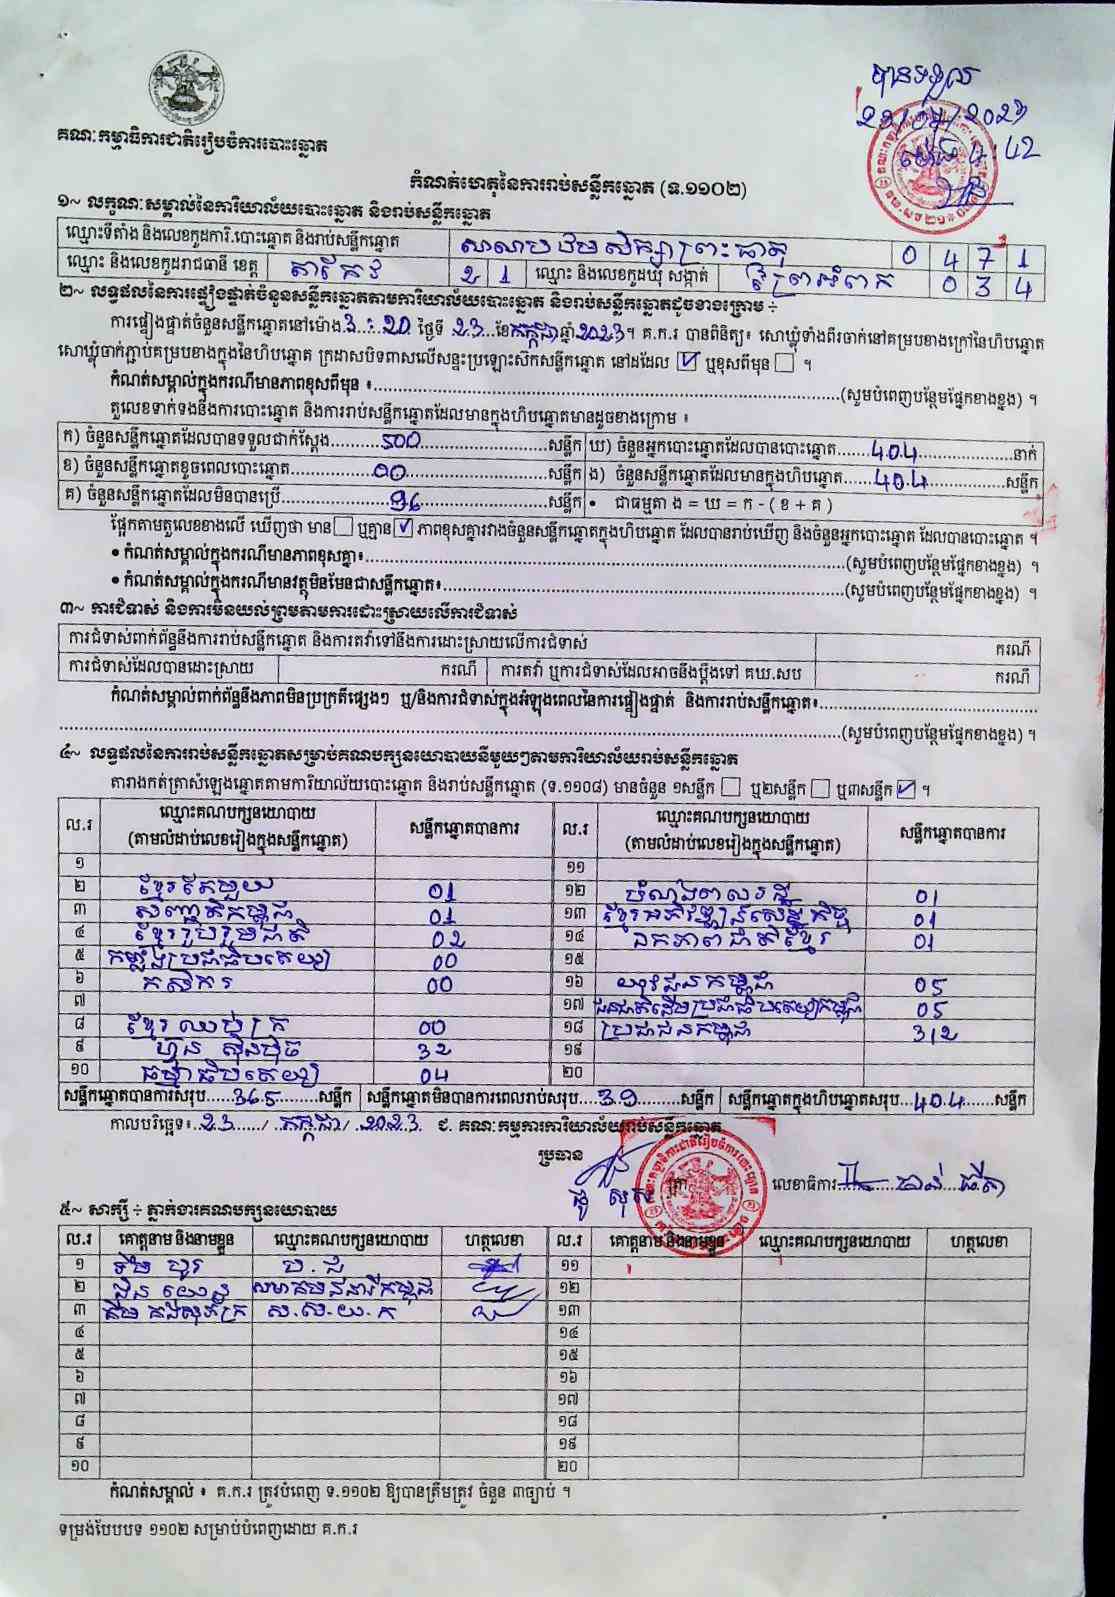 បានទទួល
23/07/2023
ម៉ោង 4:42
គណៈកម្មាធិការជាតិរៀបចំការបោះឆ្នោត
កំណត់ហេតុនៃការរាប់សន្លឹកឆ្នោត (ទ.១១០២)
១~ លក្ខណៈសម្គាល់នៃការិយាល័យបោះឆ្នោត និងរាប់សន្លឹកឆ្នោត
ឈ្មោះទីតាំង និងលេខកូដការិ.បោះឆ្នោត និងរាប់សន្លឹកឆ្នោត សាលាបឋមសិក្សាព្រះធាតុ 0 4 7 1
ឈ្មោះ និងលេខកូដរាជធានី ខេត្ត តាកែវ 2 1 ឈ្មោះ និងលេខកូដឃុំ សង្កាត់ ព្រៃអំពក 0 3 4
២~ លទ្ធផលនៃការផ្ទៀងផ្ទាត់ចំនួនសន្លឹកឆ្នោតតាមការិយាល័យបោះឆ្នោត និងរាប់សន្លឹកឆ្នោតដូចខាងក្រោម ៖
ការផ្ទៀងផ្ទាត់ចំនួនសន្លឹកឆ្នោតនៅម៉ោង 3:20 ថ្ងៃទី 23 ខែកក្កដាឆ្នាំ 2023។ គ.ក.រ បានពិនិត្យ៖ សោឃ្លុំទាំងពីរចាក់នៅគម្របខាងក្រៅនៃហិបឆ្នោត
សោឃ្លុំចាក់ភ្ជាប់គម្របខាងក្នុងនៃហិបឆ្នោត ក្រដាសបិទពាសលើសន្ទះប្រឡោះស៊កសន្លឹកឆ្នោត នៅដដែល ☑ ឬខុសពីមុន ☐ ។
កំណត់សម្គាល់ក្នុងករណីមានភាពខុសពីមុន ៖ (សូមបំពេញបន្ថែមផ្នែកខាងខ្នង) ។
តួលេខទាក់ទងនឹងការបោះឆ្នោត និងការរាប់សន្លឹកឆ្នោតដែលមានក្នុងហិបឆ្នោតមានដូចខាងក្រោម ៖
ក) ចំនួនសន្លឹកឆ្នោតដែលបានទទួលជាក់ស្តែង 500 សន្លឹក ឃ) ចំនួនអ្នកបោះឆ្នោតដែលបានបោះឆ្នោត 404 នាក់
ខ) ចំនួនសន្លឹកឆ្នោតខូចពេលបោះឆ្នោត 00 សន្លឹក ង) ចំនួនសន្លឹកឆ្នោតដែលមានក្នុងហិបឆ្នោត 404 សន្លឹក
គ) ចំនួនសន្លឹកឆ្នោតដែលមិនបានប្រើ 96 សន្លឹក • ជាធម្មតា ង = ឃ = ក - ( ខ + គ )
ផ្អែកតាមតួលេខខាងលើ ឃើញថា មាន ☐ ឬគ្មាន ☑ ភាពខុសគ្នារវាងចំនួនសន្លឹកឆ្នោតក្នុងហិបឆ្នោត ដែលបានរាប់ឃើញ និងចំនួនអ្នកបោះឆ្នោត ដែលបានបោះឆ្នោត ។
• កំណត់សម្គាល់ក្នុងករណីមានភាពខុសគ្នា៖ (សូមបំពេញបន្ថែមផ្នែកខាងខ្នង) ។
• កំណត់សម្គាល់ក្នុងករណីមានវត្ថុមិនមែនជាសន្លឹកឆ្នោត៖ (សូមបំពេញបន្ថែមផ្នែកខាងខ្នង) ។
៣~ ការជំទាស់ និងការមិនយល់ព្រមតាមការដោះស្រាយលើការជំទាស់
ការជំទាស់ពាក់ព័ន្ធនឹងការរាប់សន្លឹកឆ្នោត និងការតវ៉ាទៅនឹងការដោះស្រាយលើការជំទាស់ ករណី
ការជំទាស់ដែលបានដោះស្រាយ ករណី ការតវ៉ា ឬការជំទាស់ដែលអាចនឹងប្តឹងទៅ គឃ.សប ករណី
កំណត់សម្គាល់ពាក់ព័ន្ធនឹងភាពមិនប្រក្រតីផ្សេងៗ ឬ/និងការជំទាស់ក្នុងអំឡុងពេលនៃការផ្ទៀងផ្ទាត់ និងការរាប់សន្លឹកឆ្នោត៖
(សូមបំពេញបន្ថែមផ្នែកខាងខ្នង) ។
៤~ លទ្ធផលនៃការរាប់សន្លឹកឆ្នោតសម្រាប់គណបក្សនយោបាយនីមួយៗតាមការិយាល័យរាប់សន្លឹកឆ្នោត
តារាងកត់ត្រាសំឡេងឆ្នោតតាមការិយាល័យបោះឆ្នោត និងរាប់សន្លឹកឆ្នោត (ទ.១១០៨) មានចំនួន ១សន្លឹក ☐ ឬ២សន្លឹក ☐ ឬ៣សន្លឹក ☑ ។
ល.រ ឈ្មោះគណបក្សនយោបាយ (តាមលំដាប់លេខរៀងក្នុងសន្លឹកឆ្នោត) សន្លឹកឆ្នោតបានការ ល.រ ឈ្មោះគណបក្សនយោបាយ (តាមលំដាប់លេខរៀងក្នុងសន្លឹកឆ្នោត) សន្លឹកឆ្នោតបានការ
១ ១១
២ ខ្មែរតែមួយ 01 ១២ 01
៣ សញ្ជាតិកម្ពុជា 01 ១៣ ខ្មែរអភិវឌ្ឍន៍សេដ្ឋកិច្ច 01
៤ ខ្មែររួបរួមជាតិ 02 ១៤ ឯកភាពជាតិខ្មែរ 01
៥ កម្លាំងប្រជាធិបតេយ្យ 00 ១៥
៦ កសិករ 00 ១៦ យុវជនកម្ពុជា 05
៧ ១៧ ជនជាតិដើមប្រជាធិបតេយ្យកម្ពុជា 05
៨ ខ្មែរឈប់ក្រ 00 ១៨ ប្រជាជនកម្ពុជា 312
៩ ហ៊្វុនស៊ិនប៉ិច 32 ១៩
១០ ធម្មាធិបតេយ្យ 04 ២០
សន្លឹកឆ្នោតបានការសរុប 365 សន្លឹក សន្លឹកឆ្នោតមិនបានការពេលរាប់សរុប 39 សន្លឹក សន្លឹកឆ្នោតក្នុងហិបឆ្នោតសរុប 404 សន្លឹក
កាលបរិច្ឆេទ៖ 23 / កក្កដា / 2023 ជ. គណៈកម្មការការិយាល័យរាប់សន្លឹកឆ្នោត
ប្រធាន
លេខាធិការ
៥~ សាក្សី ៖ ភ្នាក់ងារគណបក្សនយោបាយ
ល.រ គោត្តនាម និងនាមខ្លួន ឈ្មោះគណបក្សនយោបាយ ហត្ថលេខា ល.រ គោត្តនាម និងនាមខ្លួន ឈ្មោះគណបក្សនយោបាយ ហត្ថលេខា
១ ប.ជ ១១
២ សមាគមន៍នារីកម្ពុជា ១២
៣ ស.ស.យ.ក ១៣
៤ ១៤
៥ ១៥
៦ ១៦
៧ ១៧
៨ ១៨
៩ ១៩
១០ ២០
កំណត់សម្គាល់ ៖ គ.ក.រ ត្រូវបំពេញ ទ.១១០២ ឱ្យបានត្រឹមត្រូវ ចំនួន ៣ច្បាប់ ។
ទម្រង់បែបបទ ១១០២ សម្រាប់បំពេញដោយ គ.ក.រ